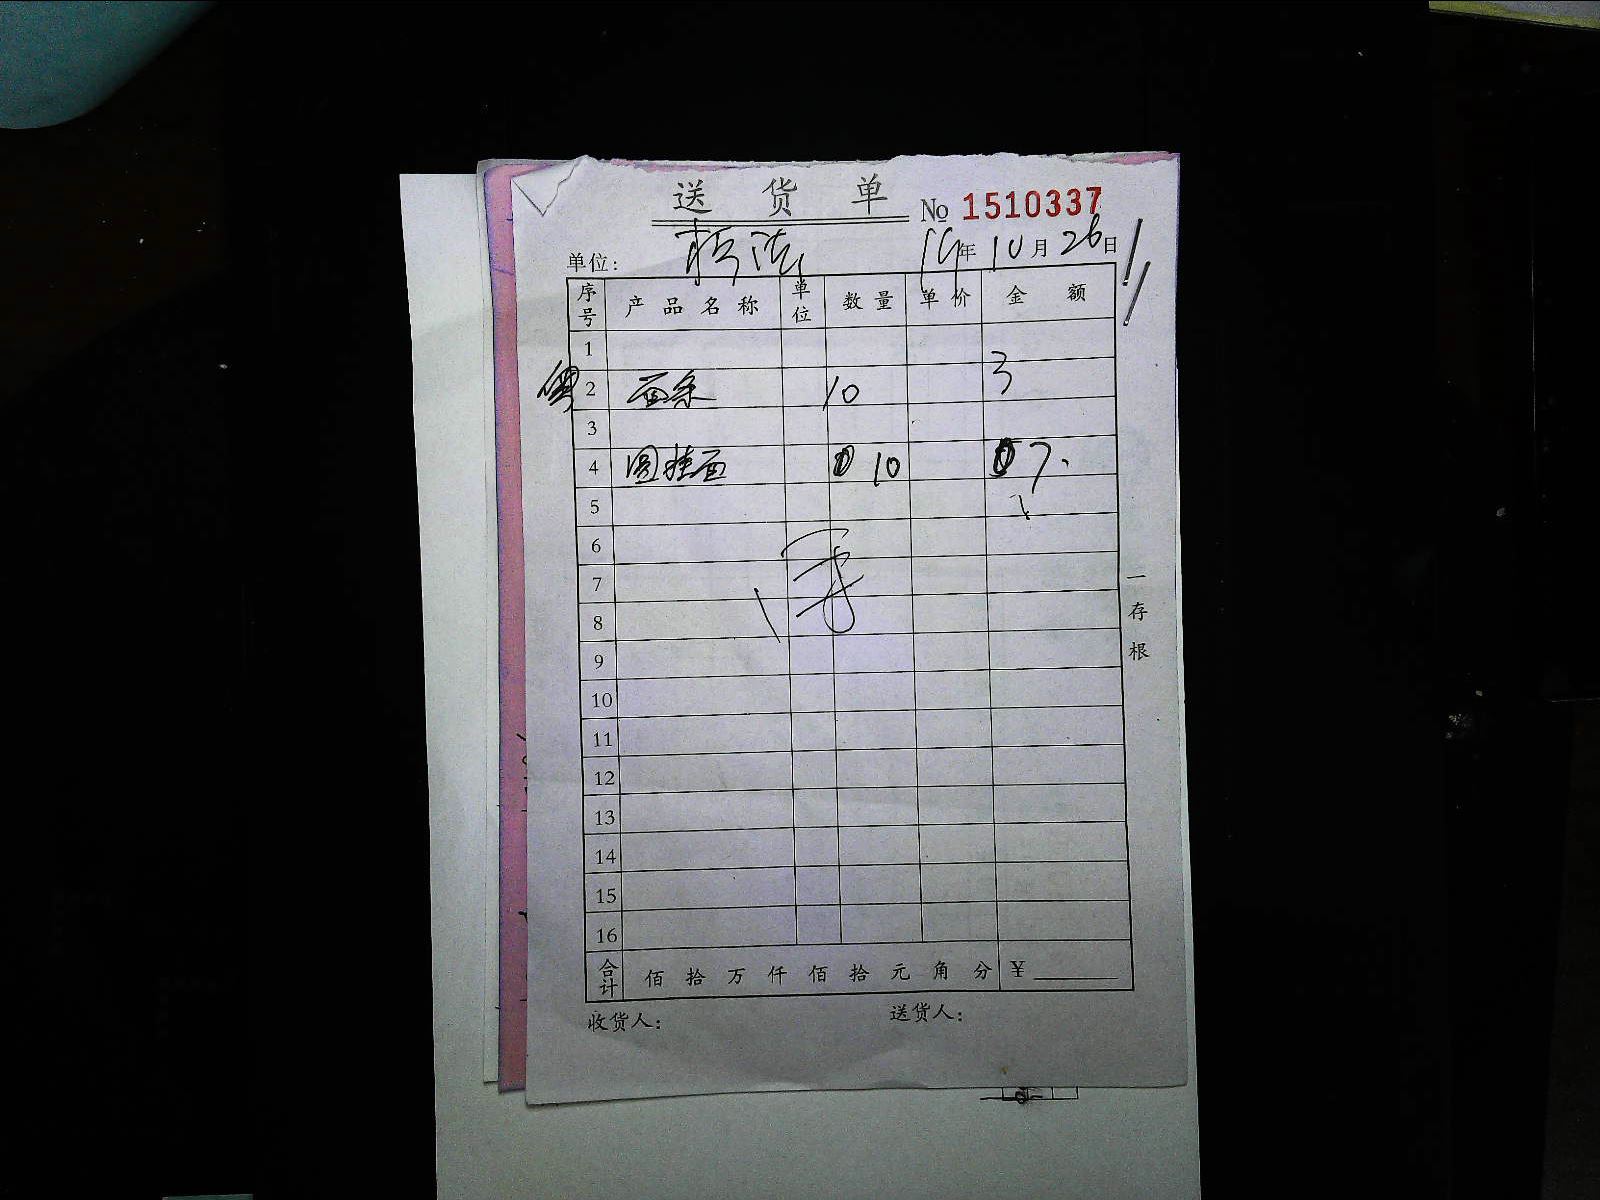 送货单
№ 1510337
单位: 年10月26日
序号 产品名称 单位 数量 单价 金额
1
2 面条 10 3
3
4 圆挂面 10 7.
5
6
7
8
9
10
11
12
13
14
15
16
合计 佰拾万仟佰拾元角分 ¥
收货人: 送货人:
一存根